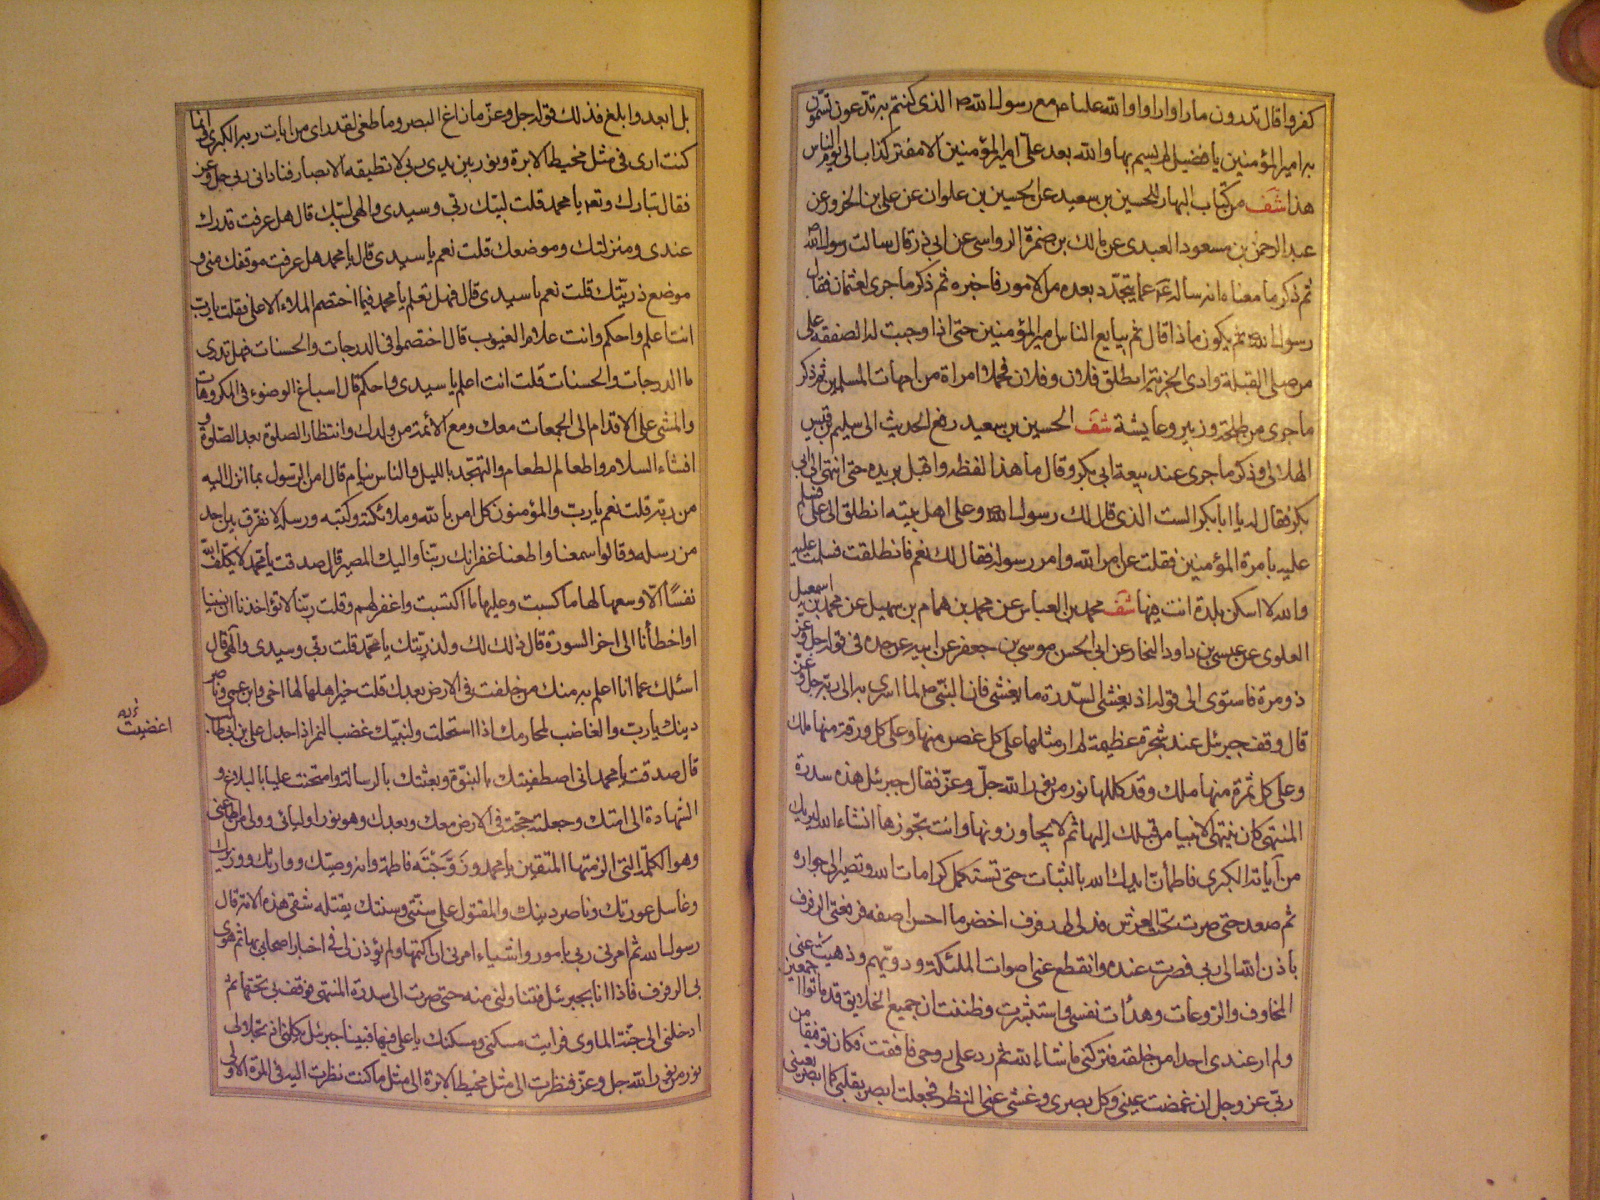 كفروا قال تدرون ما راوا راوا والله عليا ص مع رسول الله ص الذى كنتم به تدعون تسمون
به امير المؤمنين يا فضيل لم يتسم بها والله بعد على امير المؤمنين الا مفتر كذاب الى يوم الناس
هذا شف من كتاب البهار للحسين بن سعيد عن الحسين بن علوان عن على بن الخزور عن
عبد الرحمن بن مسعود العبدى عن مالك بن ضمرة الرواسى عن ابى ذر قال سالت رسول الله ص
ثم ذكر ما معناه انه ساله عما يتجدد بعده من الامور فاخبره ثم ذكر ما جرى لعثمان فقال
رسول الله ثم يكون ماذا قال ثم يبايع الناس امير المؤمنين حتى اذا وجبت له الصفقه على
من صلى القبلة وادى الجزية انطلق فلان وفلان فحملا امراة من امهات المسلمين ثم ذكر
ما جرى من طلحة وزبير وعايشة شف الحسين بن سعيد رفع الحديث الى سليم بن قيس
الهلالى وذكر ما جرى عند بيعة ابى بكر وقال ما هذا لفظه واقبل بريده حتى انتهى الى ابى
بكر فقال له يا ابا بكر الست الذى قال لك رسول الله وعلى اهل بيته انطلق الى على فسلم
عليه بامرة المؤمنين فقلت عن امر الله وامر رسوله فقال لك نعم فانطلقت فسلمت عليه
والله لا اسكن بلدة انت فيها شف محمد بن العباس عن محمد بن همام بن سهيل عن محمد بن اسمعيل
العلوى عن عيسى بن داود النجار عن ابى الحسن موسى بن جعفر عن ابيه عن جده فى قوله جل وعز
ذو مرة فاستوى الى قوله اذ يغشى السدرة ما يغشى فان النبى ص لما اسرى به الى ربه جل وعز
قال وقف جبرئيل عند شجرة عظيمة لم ار مثلها على كل غصن منها وعلى كل ورقة منها ملك
وعلى كل ثمرة منها ملك وقد كللها نور من نور الله جل وعز فقال جبرئيل هذه سدرة
المنتهى كان ينتهى الانبيا من قبلك اليها ثم لا يجاوزونها وانت تجوزها انشاء الله ليريك
من آياته الكبرى فاطمأن ايدك الله بالثبات حتى تستكمل كرامات الله وتصير الى جواره
ثم صعد حتى صرت تحت العرش فدلى لى رفرف اخضر ما احسن اصفه فرفعنى الرفرف
باذن الله الى ربى فصرت عنده وانقطع عنى اصوات الملئكة ودويهم وذهبت عنى
المخاوف والروعات وهدأت نفسى واستبشرت وظننت ان جميع الخلايق قد ماتوا اجمعين
ولم ار عندى احدا من خلقه فتركنى ما شاء الله ثم رد على روحى فافقت فكان توفيقا من
ربى عز وجل ان غمضت عينى وكل بصرى وغشى عنى النظر فجعلت ابصر بقلبى كما ابصر بعينى
بل ابعد وابلغ فذلك قوله جل وعز ما زاغ البصر وما طغى لقد راى من ايات ربه الكبرى وانما
كنت ارى فى مثل مخيط الابرة ونور بين يدى ربى لا تطيقه الابصار فنادانى ربى جل وعز
فقال تبارك وتعه يا محمد قلت لبيك ربى وسيدى والهى لبيك قال هل عرفت قدرك
عندى ومنزلتك وموضعك قلت نعم يا سيدى قال يا محمد هل عرفت موقفك منى و
موضع ذريتك قلت نعم يا سيدى قال فهل تعلم يا محمد فيما اختصم الملاء الاعلى فقلت يارب
انت اعلم واحكم وانت علام الغيوب قال اختصموا فى الدرجات والحسنات فهل تدرى
ما الدرجات والحسنات قلت انت اعلم يا سيدى واحكم قال اسباغ الوضوء فى المكروهات
والمشى على الاقدام الى الجمعات معك ومع الائمة من ولدك وانتظار الصلوة بعد الصلوة و
افشاء السلام واطعام الطعام والتهجد بالليل والناس نيام قال امن الرسول بما انزل اليه
من ربه قلت نعم يا رب والمؤمنون كل امن بالله وملائكته وكتبه ورسله لا نفرق بين احد
من رسله وقالوا سمعنا واطعنا غفرانك ربنا واليك المصير قال صدقت يا محمد لا يكلف الله
نفسًا الا وسعها لها ما كسبت وعليها ما اكتسبت واغفر لهم وقلت ربنا لا تؤاخذنا ان نسينا
او اخطأنا الى اخر السورة قال ذلك لك ولذريتك يا محمد قلت ربى وسيدى والهى قال
اسئلك عما انا اعلم به منك من خلفت فى الارض بعدك قلت خير اهلها لها اخى وابن عمى وناصر
دينك يا رب والغاضب لمحارمك اذا استحلت ولنبيك غضب النمر اذا جدل على بن ابى طالب
قال صدقت يا محمد انى اصطفيتك بالنبوة وبعثتك بالرسالة وامتحنت عليا بالبلاغ و
الشهادة الى امتك وجعلته حجة فى الارض معك وبعدك وهو نور اوليائى وولى من اطاعنى
وهو الكلمة التى الزمتها المتقين يا محمد وزوجته فاطمة وانه وصيك ووارثك ووزيرك
وغاسل عورتك وناصر دينك والمقتول على سنتى وسنتك يقتله شقى هذه الامة قال
رسول الله ثم امرنى ربى بامور واشياء امرنى ان اكتمها ولم يؤذن لى فى اخبار اصحابى بها ثم هوى
بى الرفرف فاذا انا بجبرئيل فتناولنى منه حتى صرت الى سدرة المنتهى فوقف بى تحتها ثم
ادخلنى الى جنة الماوى فرايت مسكنى ومسكنك يا على فيها فبينا جبرئيل يكلمنى اذ تجلى لى
نور من نور الله جل وعز فنظرت الى مثل مخيط الابرة الى مثل ما كنت نظرت اليه فى المرة الاولى
اغضبت